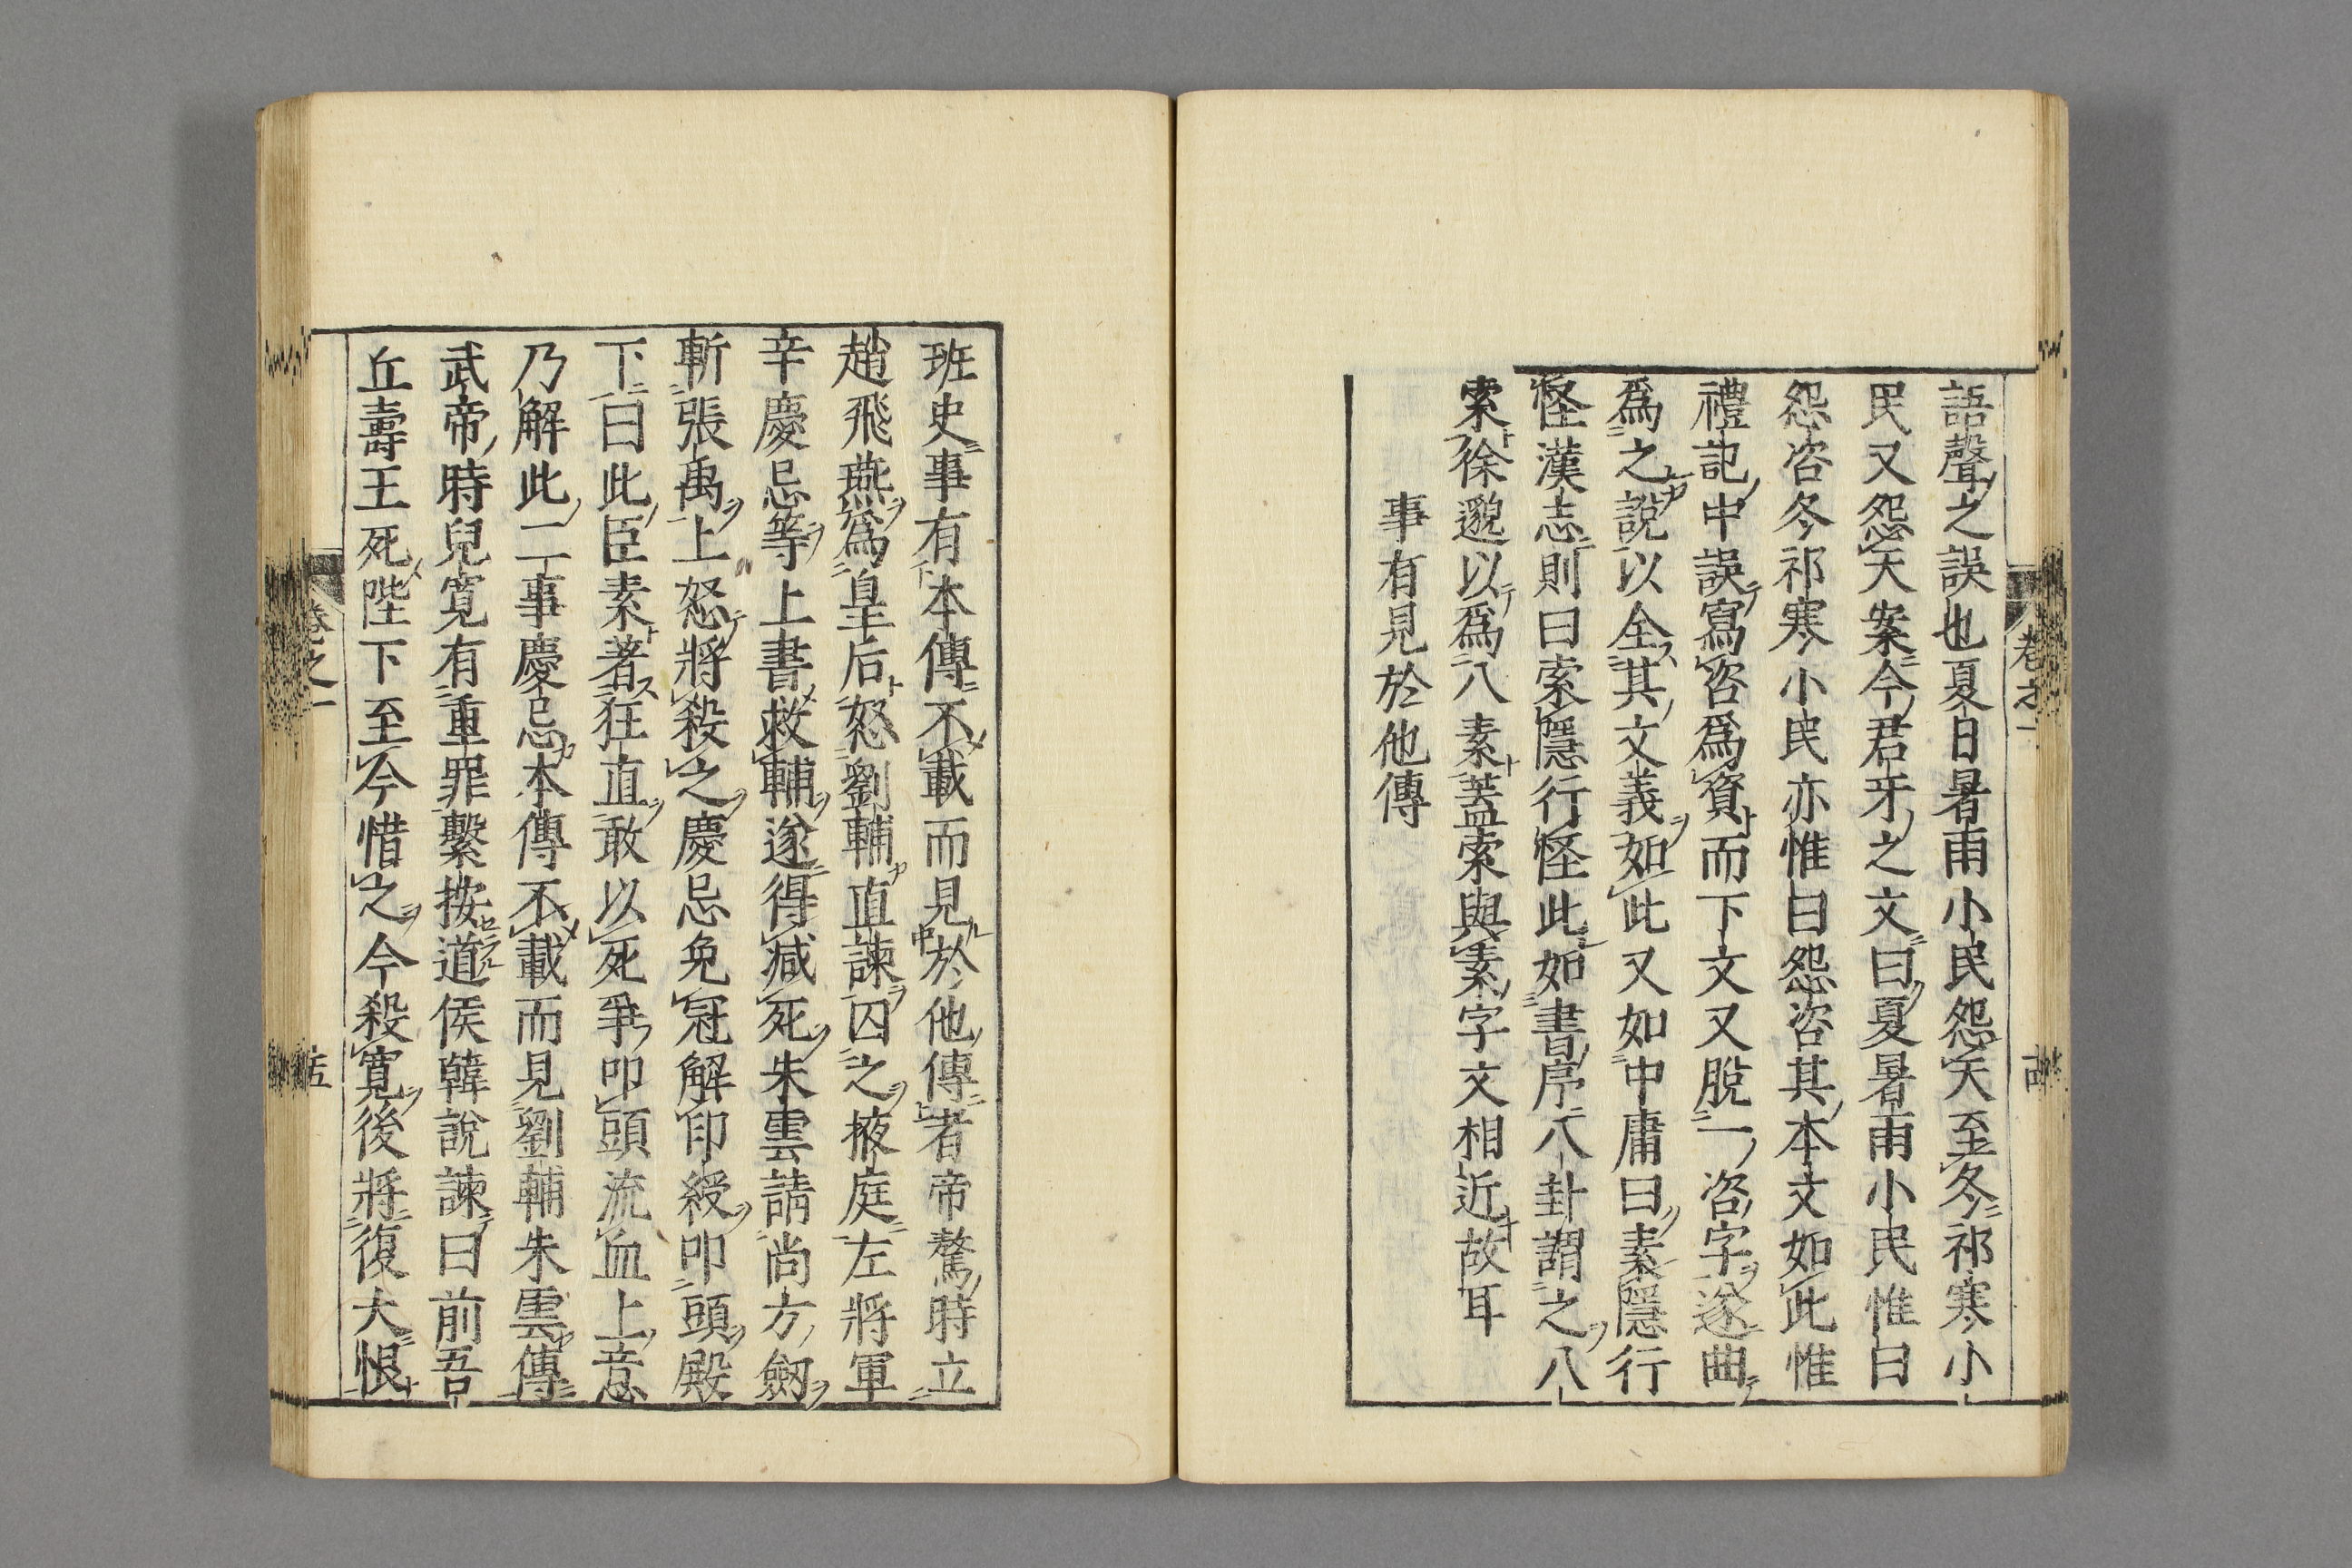 語聲之誤也夏日暑雨小民怨天至冬祁寒小
民又怨天案今君牙之文曰夏暑雨小民惟曰
怨咨冬祁寒小民亦惟曰怨咨其本文如此惟
禮記中誤寫咨爲資而下文又脫一咨字遂曲
爲之說以全其文義如此又如中庸曰素隱行
怪漢志則曰索隱行怪此如書序八卦謂之八
索徐邈以爲八素蓋索與素字文相近故耳
事有見於他傳
班史事有本傳不載而見於他傳者帝驁時立
趙飛燕爲皇后怒劉輔直諫囚之掖庭左將軍
辛慶忌等上書救輔遂得减死朱雲請尚方劔
斬張禹上怒將殺之慶忌免冠解印綬叩頭殿
下曰此臣素著狂直敢以死爭叩頭流血上意
乃解此二事慶忌本傳不載而見劉輔朱雲傳
武帝時兒寬有重罪繫按道侯韓說諫曰前吾
丘壽王死陛下至今惜之今殺寬後將復大恨
卷之一
卷之一